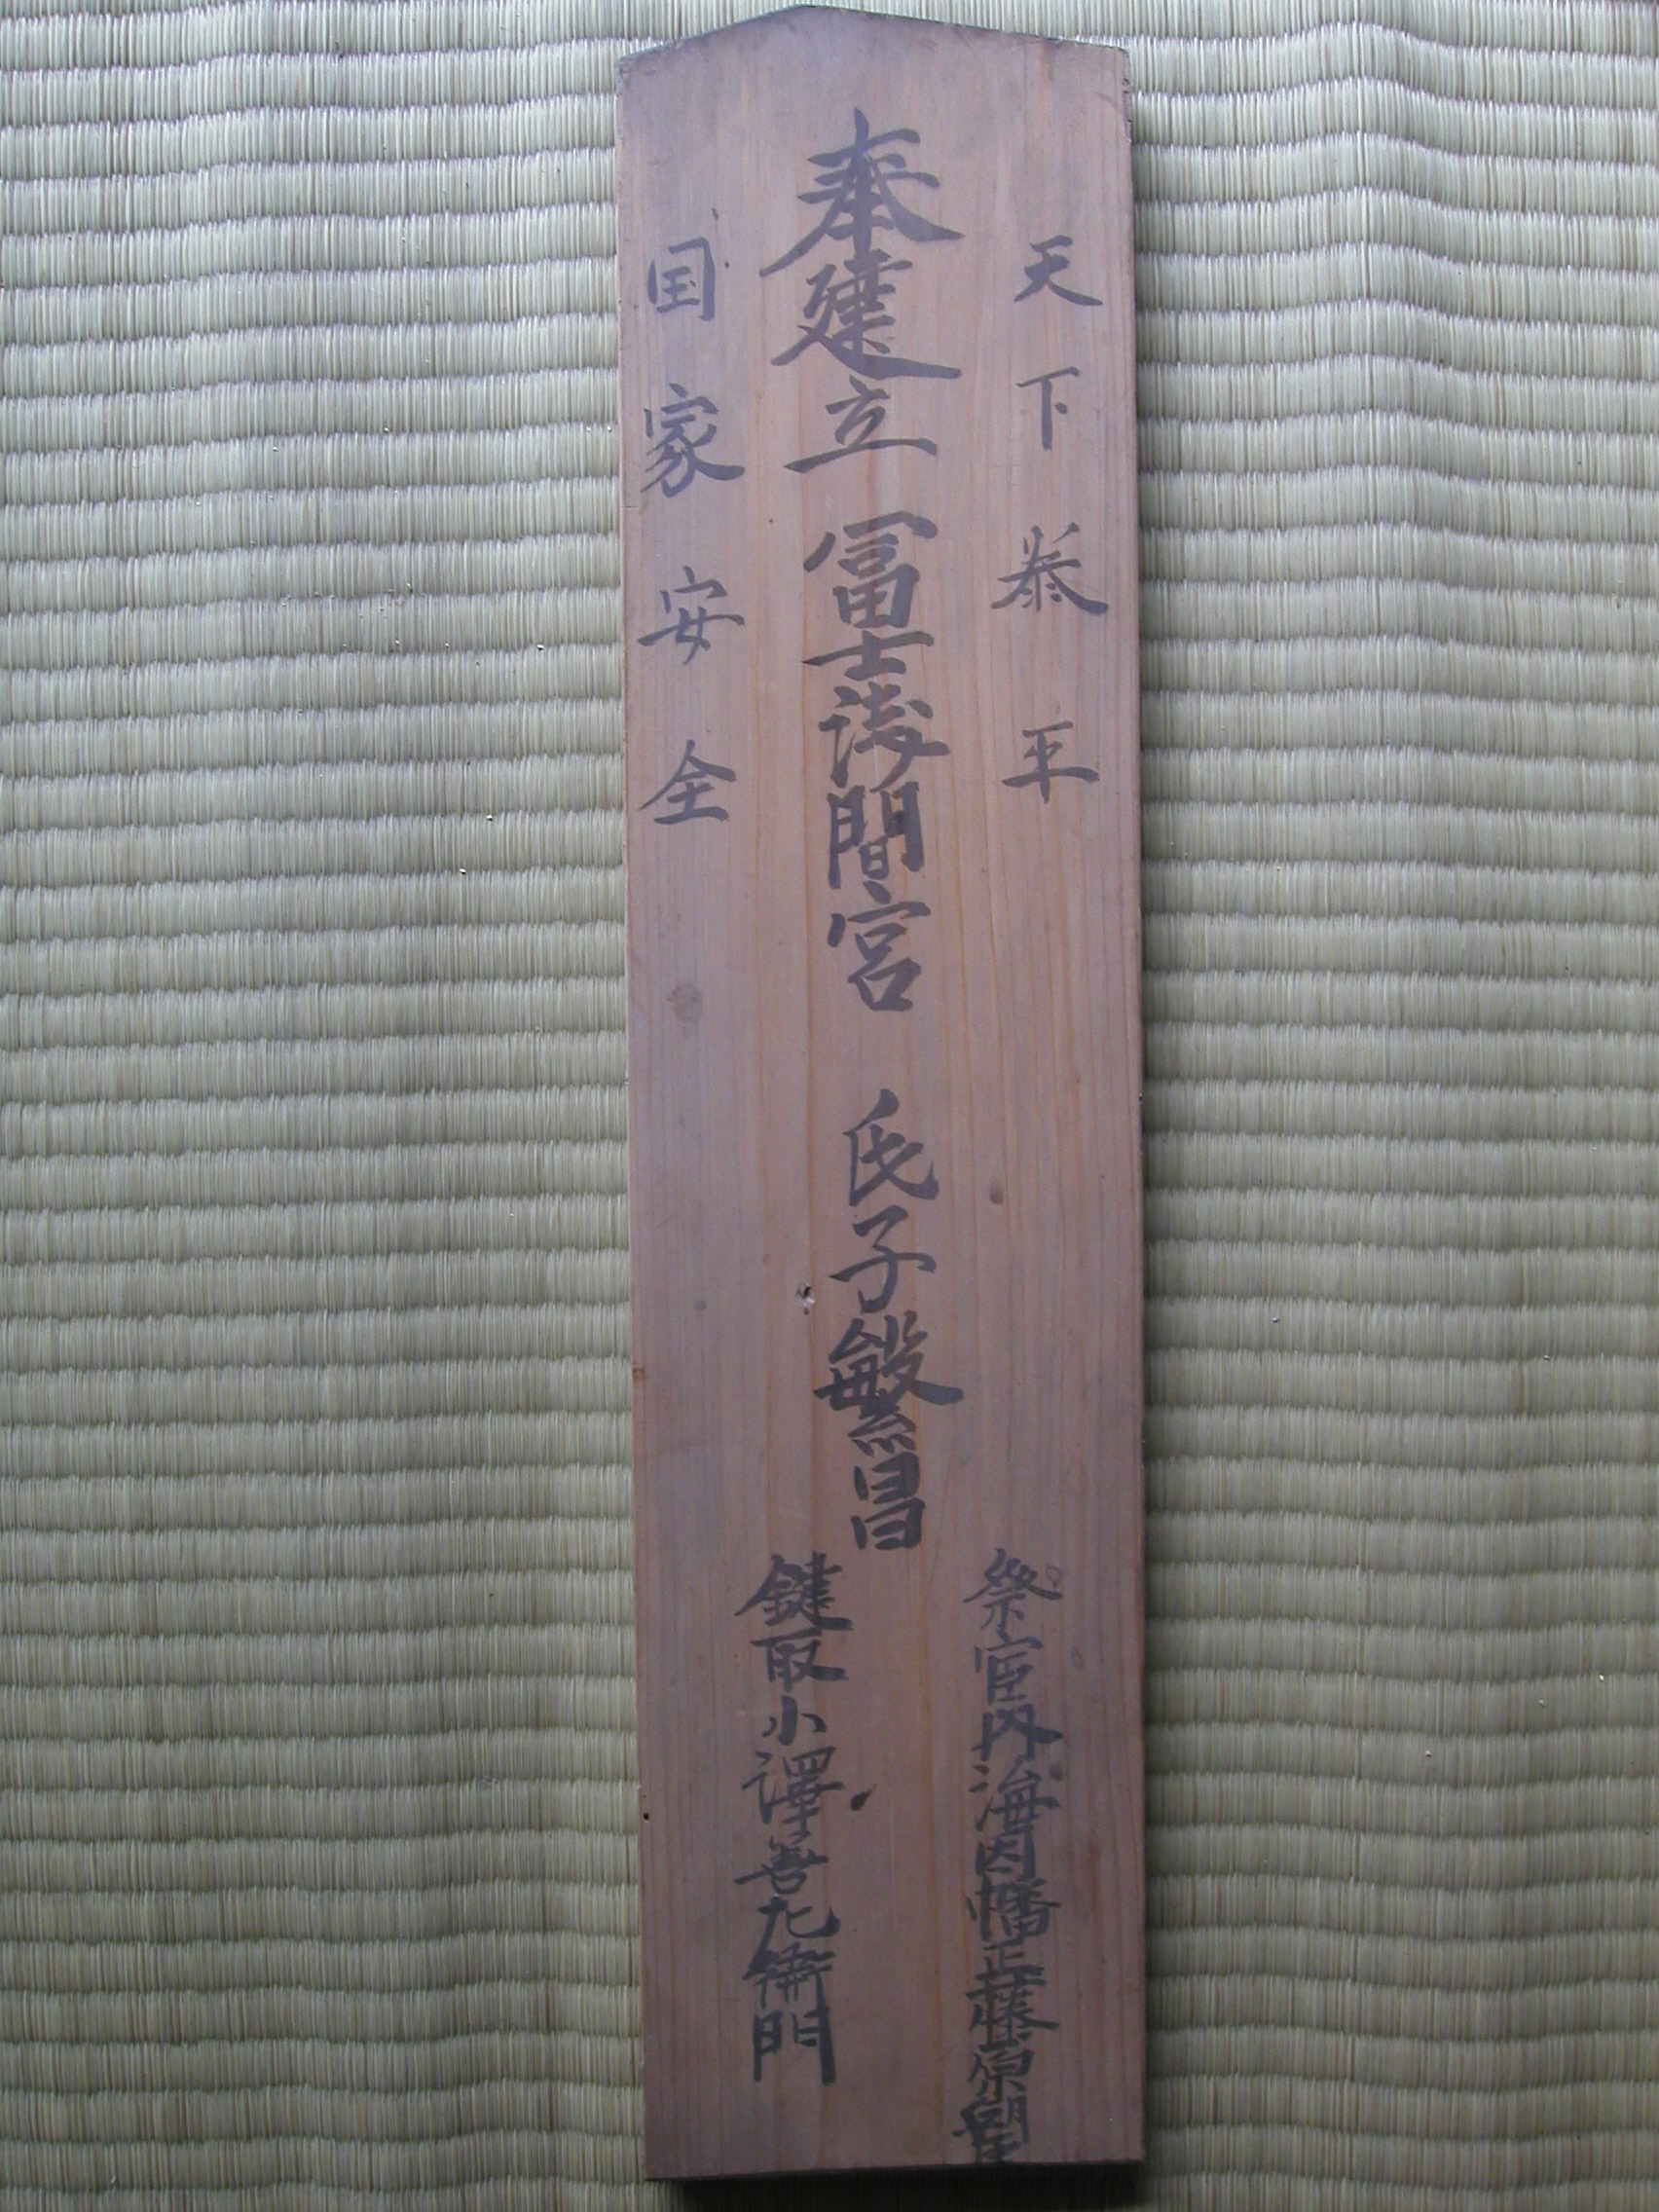 天下泰平
奉建立 冨士浅間宮 氏子繁昌
国家安全
祭官内海因幡正藤原
鍵取小澤善左衛門